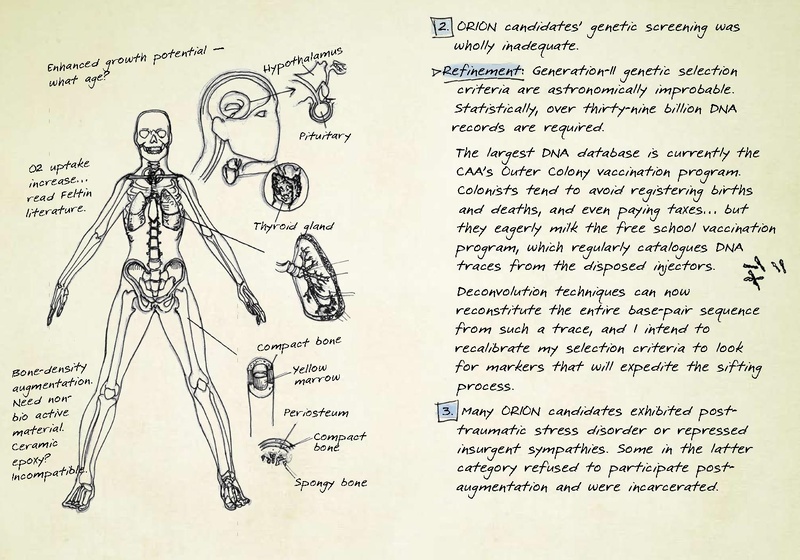 Enhanced growth potential —
what age?
Hypothalamus
Pituitary
O2 uptake
increase...
read Feltin
literature.
Thyroid gland
Compact bone
Yellow
marrow
Periosteum
Compact
bone
Spongy bone
Bone-density
augmentation.
Need non-
bio active
material.
Ceramic
epoxy?
Incompatible.
2. ORION candidates' genetic screening was
wholly inadequate.
▷Refinement: Generation-II genetic selection
criteria are astronomically improbable.
Statistically, over thirty-nine billion DNA
records are required.
The largest DNA database is currently the
CAA's Outer Colony vaccination program.
Colonists tend to avoid registering births
and deaths, and even paying taxes... but
they eagerly milk the free school vaccination
program, which regularly catalogues DNA
traces from the disposed injectors.
Deconvolution techniques can now
reconstitute the entire base-pair sequence
from such a trace, and I intend to
recalibrate my selection criteria to look
for markers that will expedite the sifting
process.
3. Many ORION candidates exhibited post-
traumatic stress disorder or repressed
insurgent sympathies. Some in the latter
category refused to participate post-
augmentation and were incarcerated.